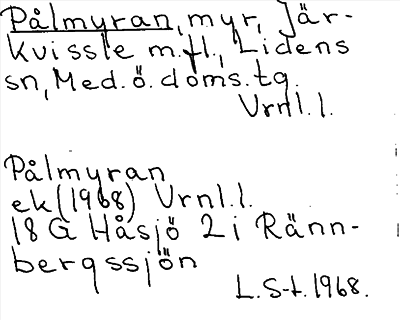 Pålmyran, myr, Jär-
kvissle m.fl., Lidens
sn, Med.ö.doms.tg.
Vrnl.l.
Pålmyran
ek (1968) Vrnl.l.
18 G Håsjö 2 i Ränn-
bergssjön
L.S-t. 1968.